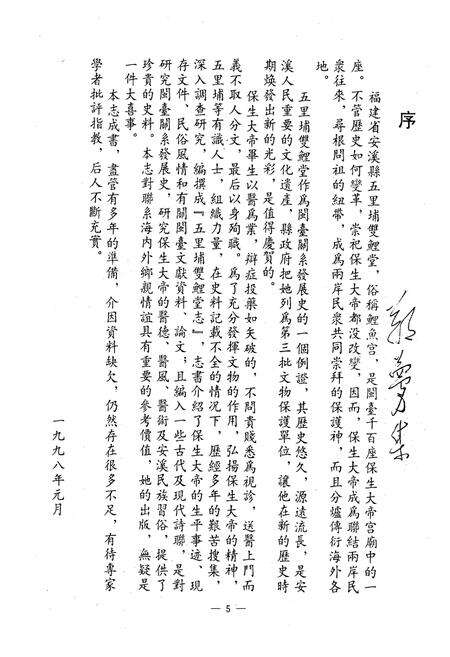 序
福建省安溪縣五里埔雙鯉堂，俗稱鯉魚宫，是閩臺千百座保生大帝宫廟中的一
座。不管歷史如何變革，崇祀保生大帝都没改變，因而，保生大帝成爲聯結兩岸民
衆往來，尋根問祖的紐帶，成爲兩岸民衆共同崇拜的保護神，而且分爐傳衍海外各
地。
五里埔雙鯉堂作爲閩臺關系發展史的一個例證，其歷史悠久，源遠流長，是安
溪人民重要的文化遺産，縣政府把她列爲第三批文物保護單位，讓他在新的歷史時
期焕發出新的光彩，是值得慶賀的。
保生大帝畢生以醫爲業，辯症投藥如矢破的，不問貴賤悉爲視診，送醫上門而
義不取人分文，最后以身殉職。爲了充分發揮文物的作用，弘揚保生大帝的精神，
五里埔等有識人士，組織力量，在史料記載不全的情况下，歷經多年的艱苦搜集，
深入調查研究，編撰成『五里埔雙鯉堂志』，志書介紹了保生大帝的生平事迹、現
存文件、民俗風情和有關閩臺文獻資料、論文；且編入一些古代及現代詩聯，是對
研究閩臺關系發展史，研究保生大帝的醫德、醫風、醫術及安溪民族習俗，提供了
珍貴的史料。本志對聯系海内外鄉親情誼具有重要的參考價值，她的出版，無疑是
一件大喜事。
本志成書，盡管有多年的準備，介因資料缺欠，仍然存在很多不足，有待專家
學者批評指教，后人不斷充實。
一九九八年元月
— 5 —